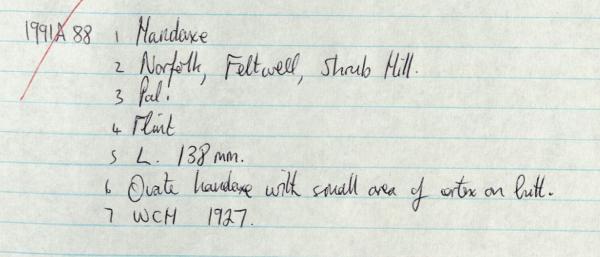 1991A 88 1 Handaxe
2 Norfolk, Feltwell, Shrub Hill.
3 Pal.
4 Flint
5 L. 138 mm.
6 Ovate handaxe with small area of cortex on butt.
7 WCH 1927.